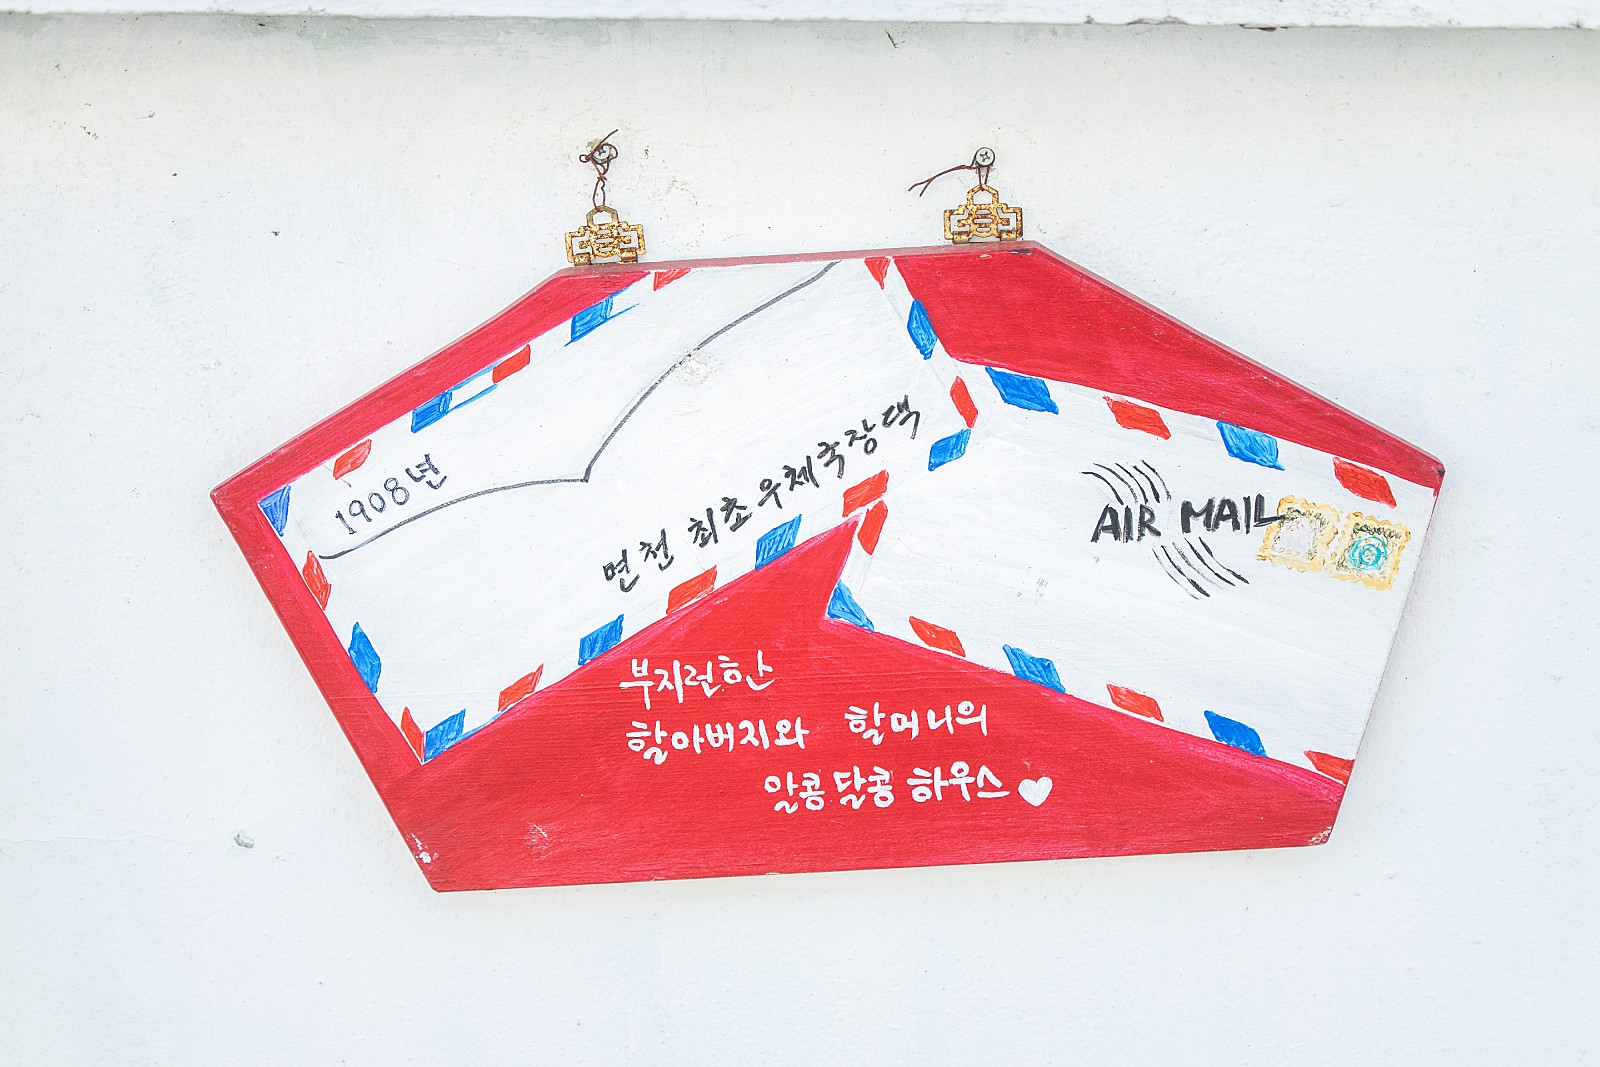 1908년
면천 최초 우체국장댁
AIR MAIL
부지런한
할아버지와 할머니의
알콩달콩 하우스